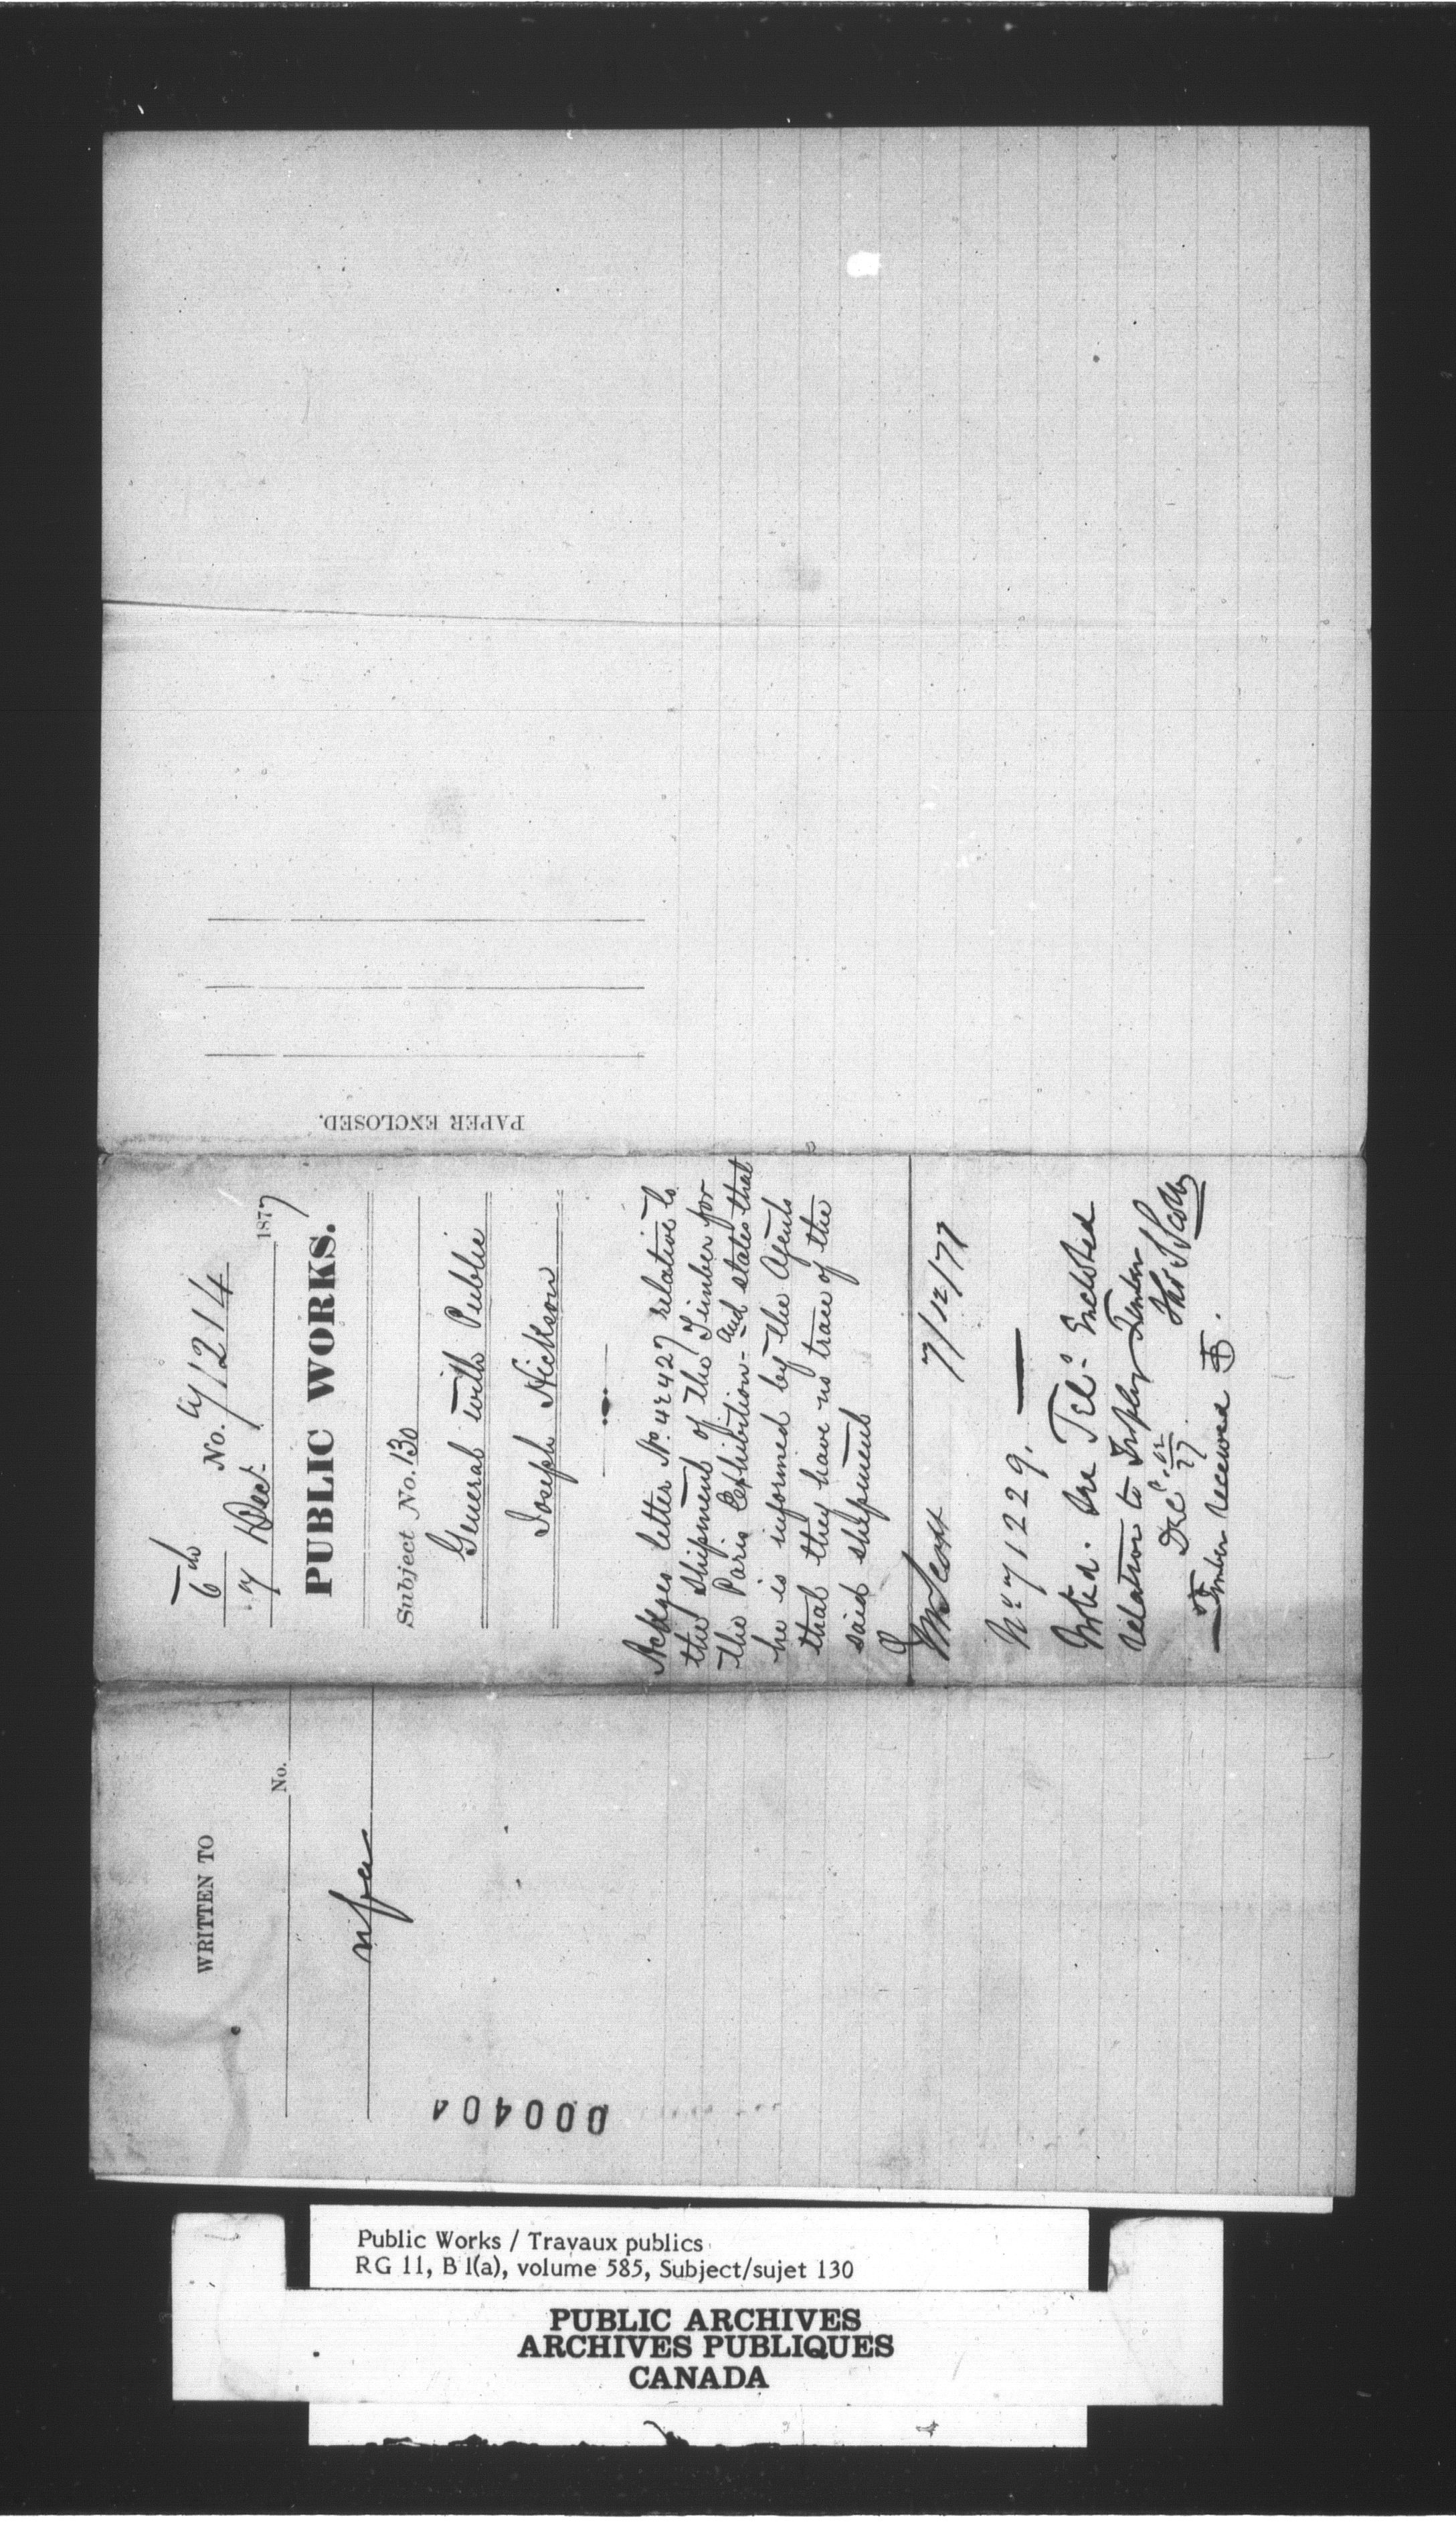 6th No. 71214
7 Dec. 1877
PUBLIC WORKS.
Subject No. 130
General with Public
Joseph Hickson
Ackges letter No. 42427 relative to
the shipment of the Timber for
the Paris Exhibition - and states that
he is informed by the Agents
that they have no trace of the
said shipment
Scott 7/12/77
No 71229.
Noted. See Tel. Enclosed
relation to Timber
Dec
Timber received
PAPER ENCLOSED.
WRITTEN TO
No.
nfa
000404
Public Works / Travaux publics
RG 11, B 1(a), volume 585, Subject/sujet 130
PUBLIC ARCHIVES
ARCHIVES PUBLIQUES
CANADA